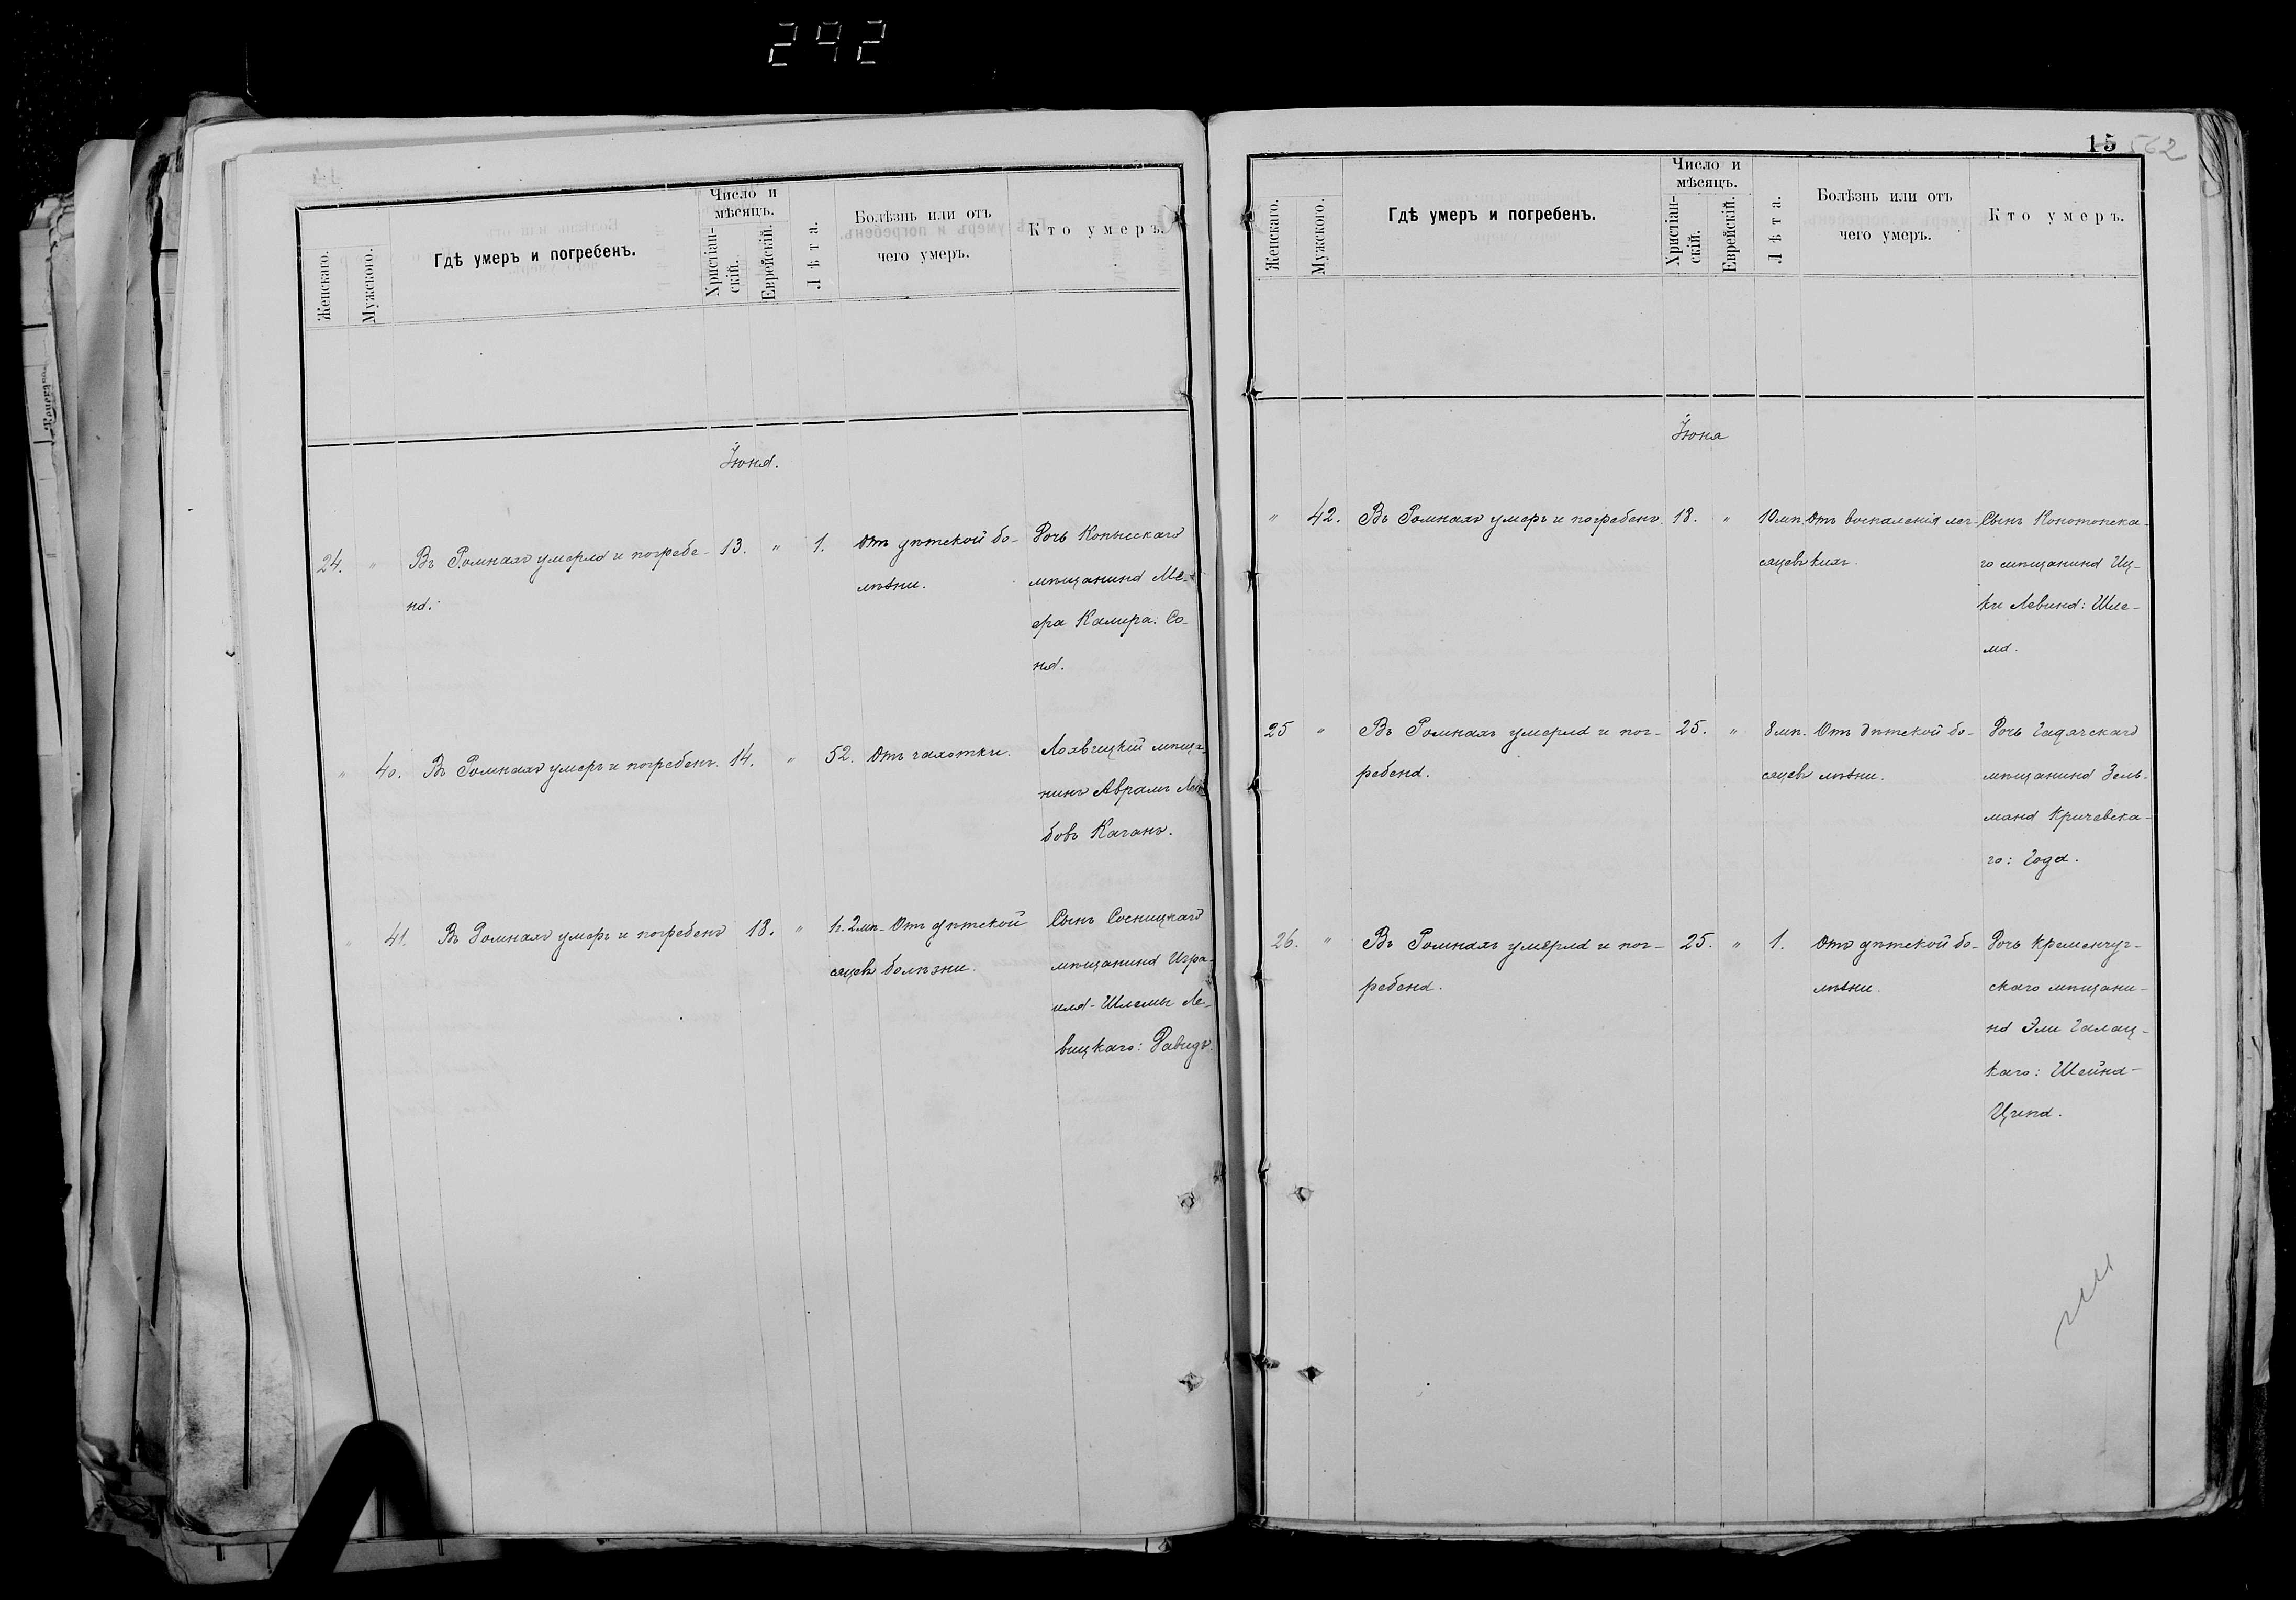 292
Женскаго.
Мужскаго.
Гдѣ умеръ и погребенъ.
Число и
мѣсяцъ.
Христіан-
скій.
Еврейскій.
Лѣта.
Болѣзнь или отъ
чего умеръ.
Кто умеръ.
Іюня.
24. " Въ Ромнахъ умерла и погребе- 13. " 1. Отъ дѣтской бо- Дочь Копысскаго
на. лѣзни. мѣщанина Ме-
ера Камира: Со-
ня.
" 40. Въ Ромнахъ умеръ и погребенъ. 14. " 52. Отъ чахотки. Лохвицкій мѣща-
нинъ Аврамъ Лей-
бовъ Каганъ.
" 41. Въ Ромнахъ умеръ и погребенъ 18. " 1г. 2мѣ- Отъ дѣтской Сынъ Сосницкаго
сяцевъ болѣзни. мѣщанина Изра-
иля-Шлемы Ле-
вицкаго: Давидъ.
15 562
Женскаго.
Мужскаго.
Гдѣ умеръ и погребенъ.
Число и
мѣсяцъ.
Христіан-
скій.
Еврейскій.
Лѣта.
Болѣзнь или отъ
чего умеръ.
Кто умеръ.
Іюня
" 42. Въ Ромнахъ умеръ и погребенъ. 18. " 10мѣ- Отъ воспаленія лег- Сынъ Конотопска-
сяцевъ кихъ. го мѣщанина Иц-
ки Левина: Шле-
ма.
25 " Въ Ромнахъ умерла и пог- 25. " 8мѣ- Отъ дѣтской бо- Дочь Гадячскаго
ребена. сяцевъ лѣзни. мѣщанина Зель-
мана Кричевска-
го: Года.
26. " Въ Ромнахъ умерла и пог- 25. " 1. Отъ дѣтской бо- Дочь Кременчуг-
ребена. лѣзни. скаго мѣщани-
на Эли Галац-
каго: Шейна-
Ципа.